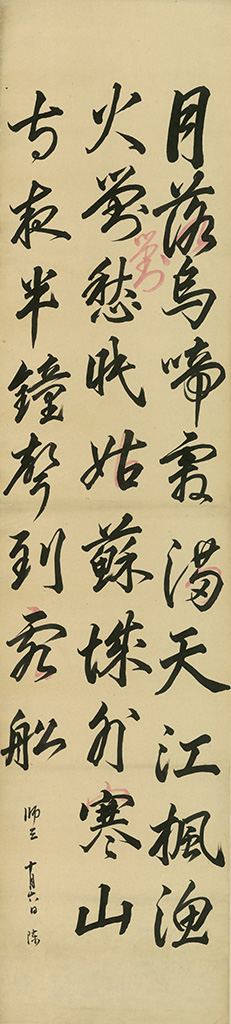 月落烏啼霜滿天江楓漁
火對愁眠姑蘇城外寒山
寺夜半鐘聲到客船
師三 十月六日 陳
對